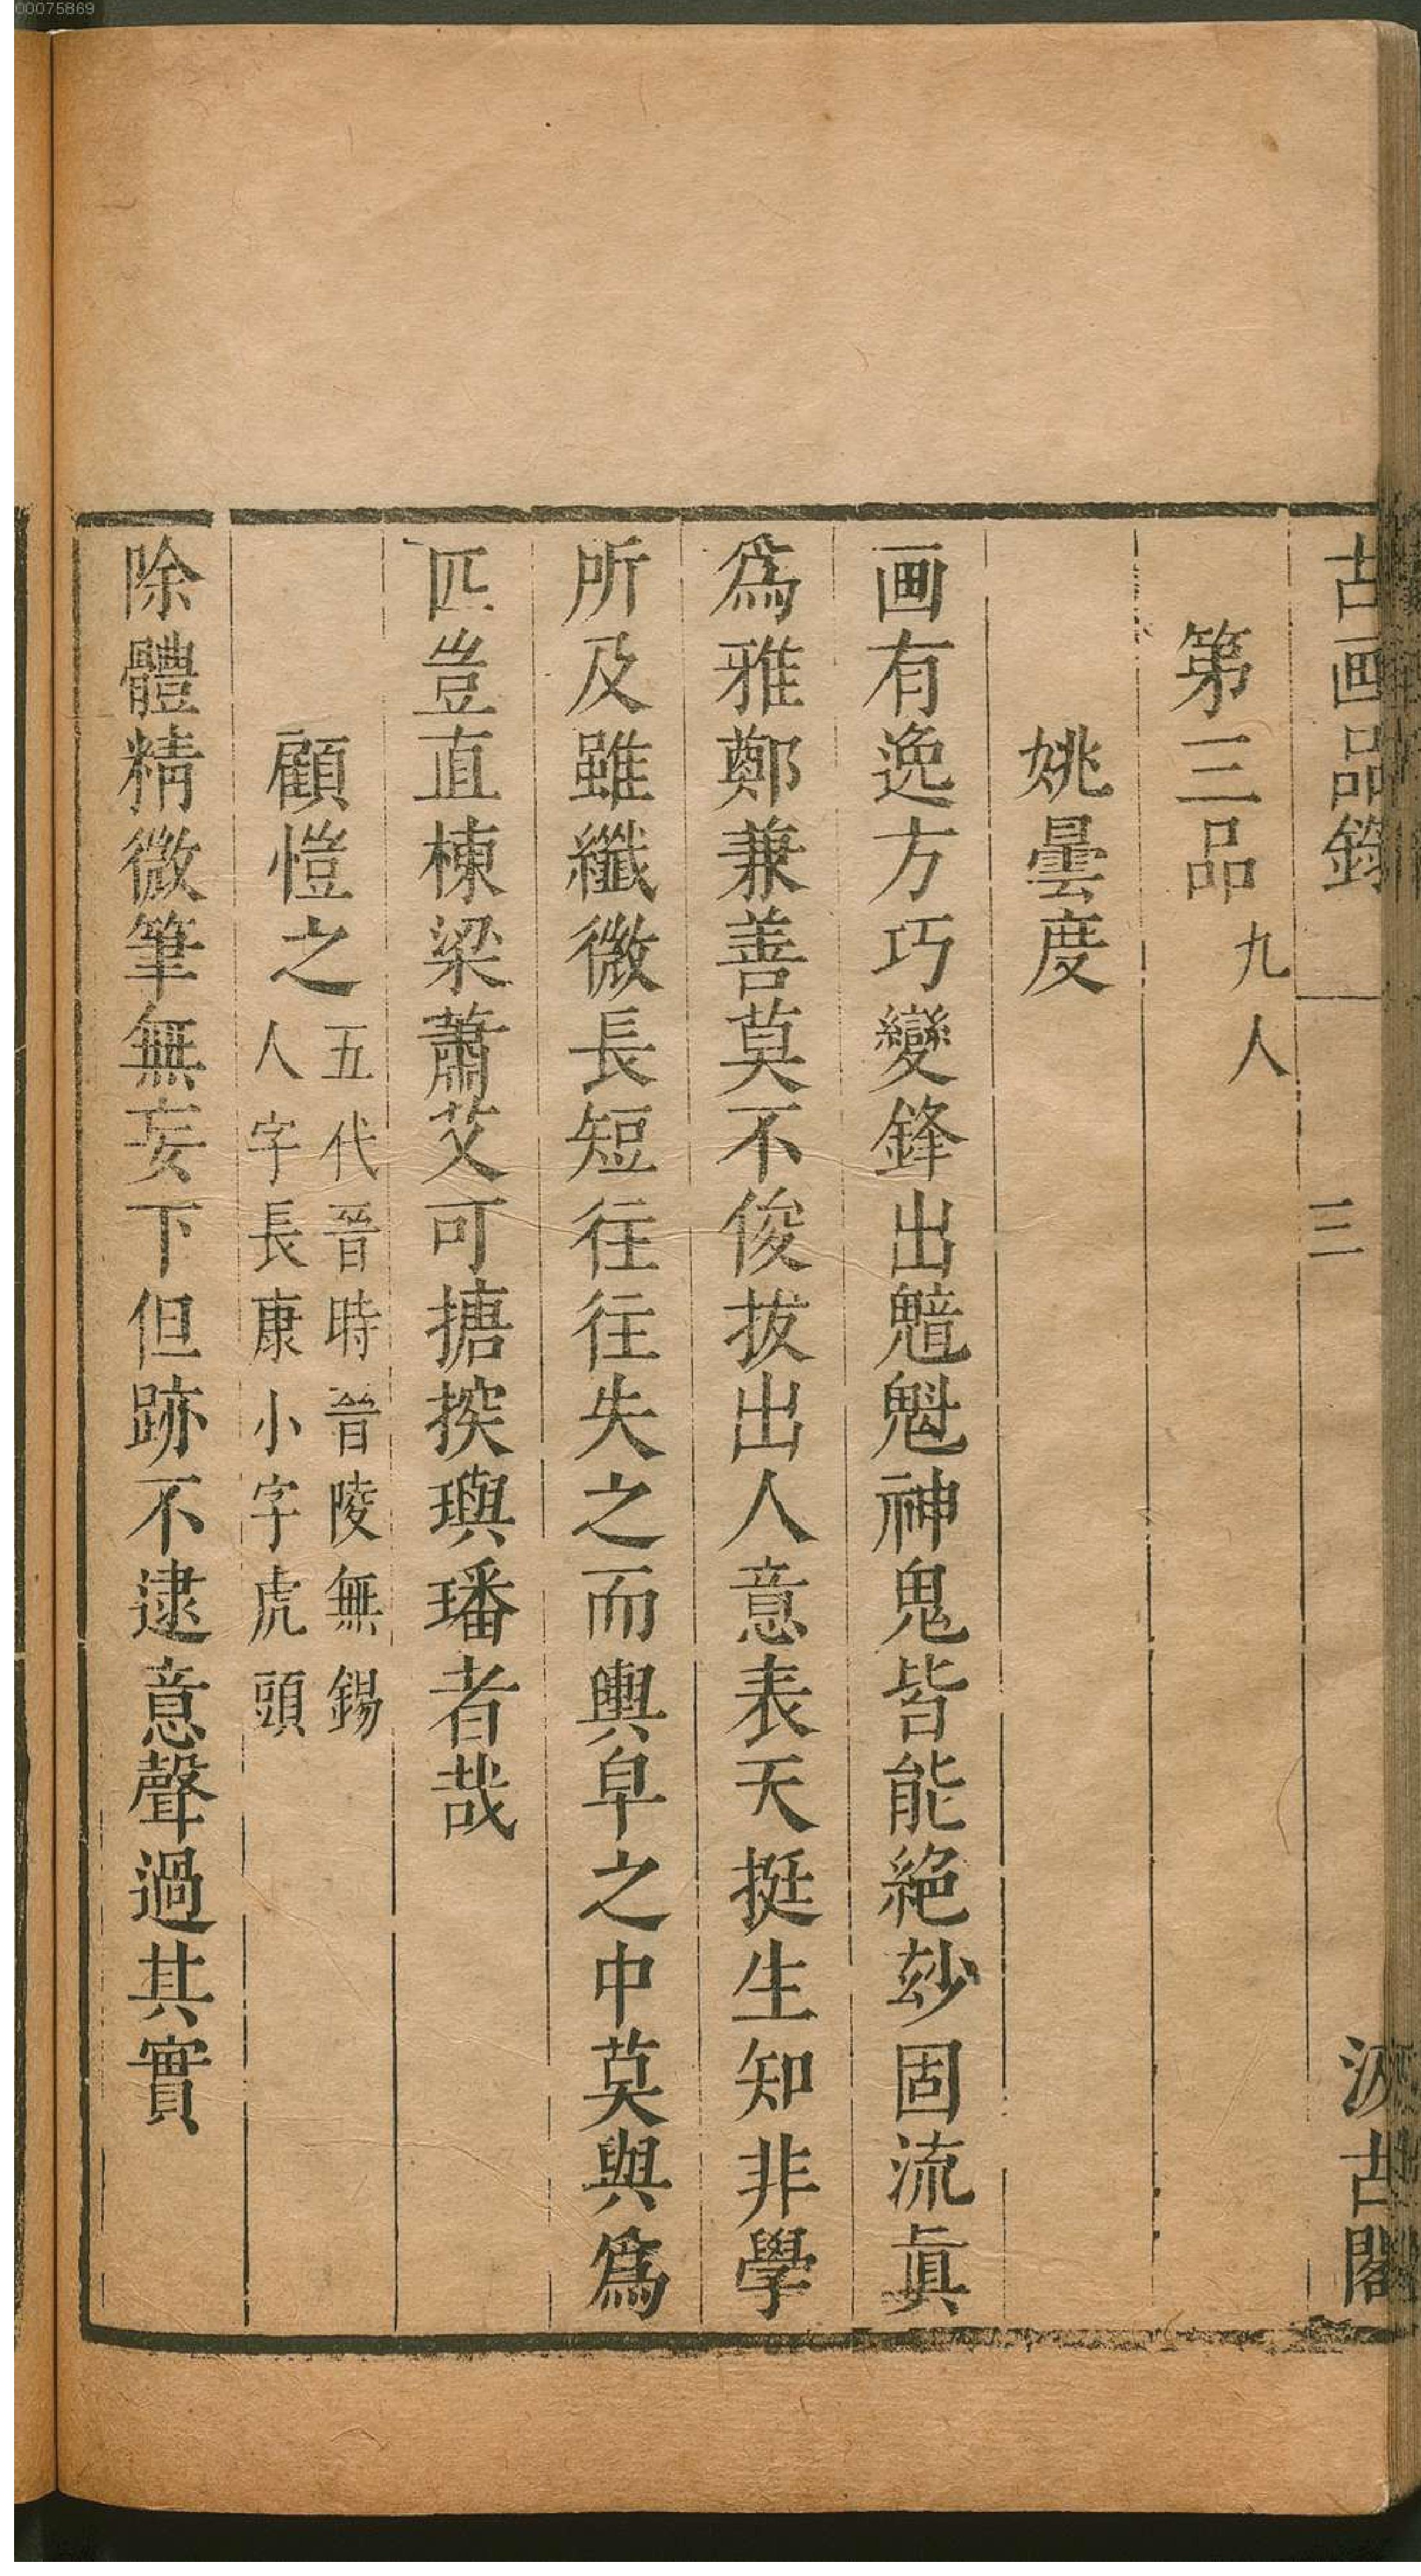 00075869
古画品錄 三 汲古閣
第三品 九人
姚曇度
画有逸方巧變鋒出魌魁神鬼皆能絕玅固流眞
爲雅鄭兼善莫不俊拔出人意表天挺生知非學
所及雖纖微長短往往失之而輿皁之中莫與爲
匹豈直棟梁蕭艾可搪揬璵璠者哉
顧愷之 五代晉時晉陵無錫
人字長康小字虎頭
除體精微筆無妄下但跡不逮意聲過其實